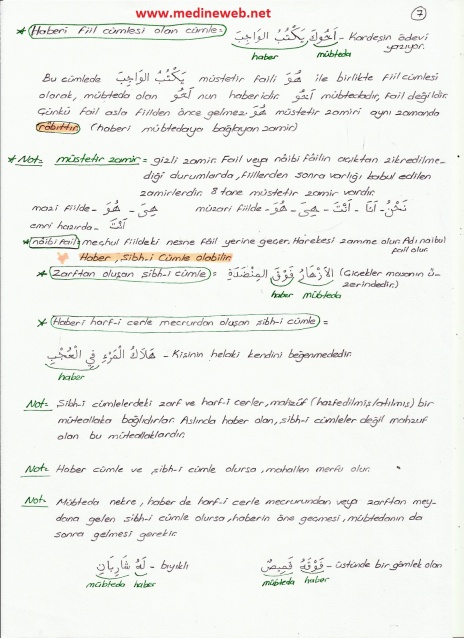 www.medineweb.net
7
* Haberi fiil cümlesi olan cümle= أَخُوكَ يَكْتُبُ الوَاجِبَ - Kardeşin ödevi yazıyor.
haber mübteda
Bu cümlede يَكْتُبُ الوَاجِبَ müstetir faili هُوَ ile birlikte fiil cümlesi
olarak, mübteda olan أَخُو nun haberidir. أَخُو mübtedadır, fail değildir.
Çünkü fail asla fiilden önce gelmez. هُوَ müstetir zamiri aynı zamanda
râbıttır. (haberi mübtedaya bağlayan zamir)
* Not- müstetir zamir= gizli zamir. Fail veya nâibi fâilin açıktan zikredilme-
diği durumlarda, fiillerden sonra varlığı kabul edilen
zamirlerdir. 8 tane müstetir zamir vardır.
mazi fiilde- هُوَ - هِيَ müzari fiilde- هُوَ - هِيَ - أَنْتَ - أَنَا - نَحْنُ
emri hazırda- أَنْتَ
* nâibi fail= meçhul fiildeki nesne fâil yerine geçer. Harekesi zamme olur. Adı naibul fail olur.
Haber, Şibh-i Cümle olabilir
* Zarftan oluşan şibh-i cümle= الأَزْهَارُ فَوْقَ المِنْضَدَةِ (Çiçekler masanın ü-
zerindedir.)
haber mübteda
* Haberi harf-i cerle mecrurdan oluşan şibh-i cümle=
هَلَاكُ الْمَرْءِ فِي الْعُجْبِ - Kişinin helakı kendini beğenmededir.
haber
Not- Şibh-i cümlelerdeki zarf ve harf-i cerler, mahzûf (hazfedilmiş/atılmış) bir
müteallaka bağlıdırlar. Aslında haber olan, şibh-i cümleler değil mahzuf
olan bu müteallaklardır.
Not- Haber cümle ve şibh-i cümle olursa, mahallen merfu olur.
Not- Mübteda nekre, haber de harf-i cerle mecrurundan veya zarftan mey-
dana gelen şibh-i cümle olursa, haberin öne geçmesi, mübtedanın da
sonra gelmesi gerekir.
لَهُ شَارِبَانِ - bıyıklı فَوْقَهُ قَمِيصٌ - üstünde bir gömlek olan
mübteda haber mübteda haber